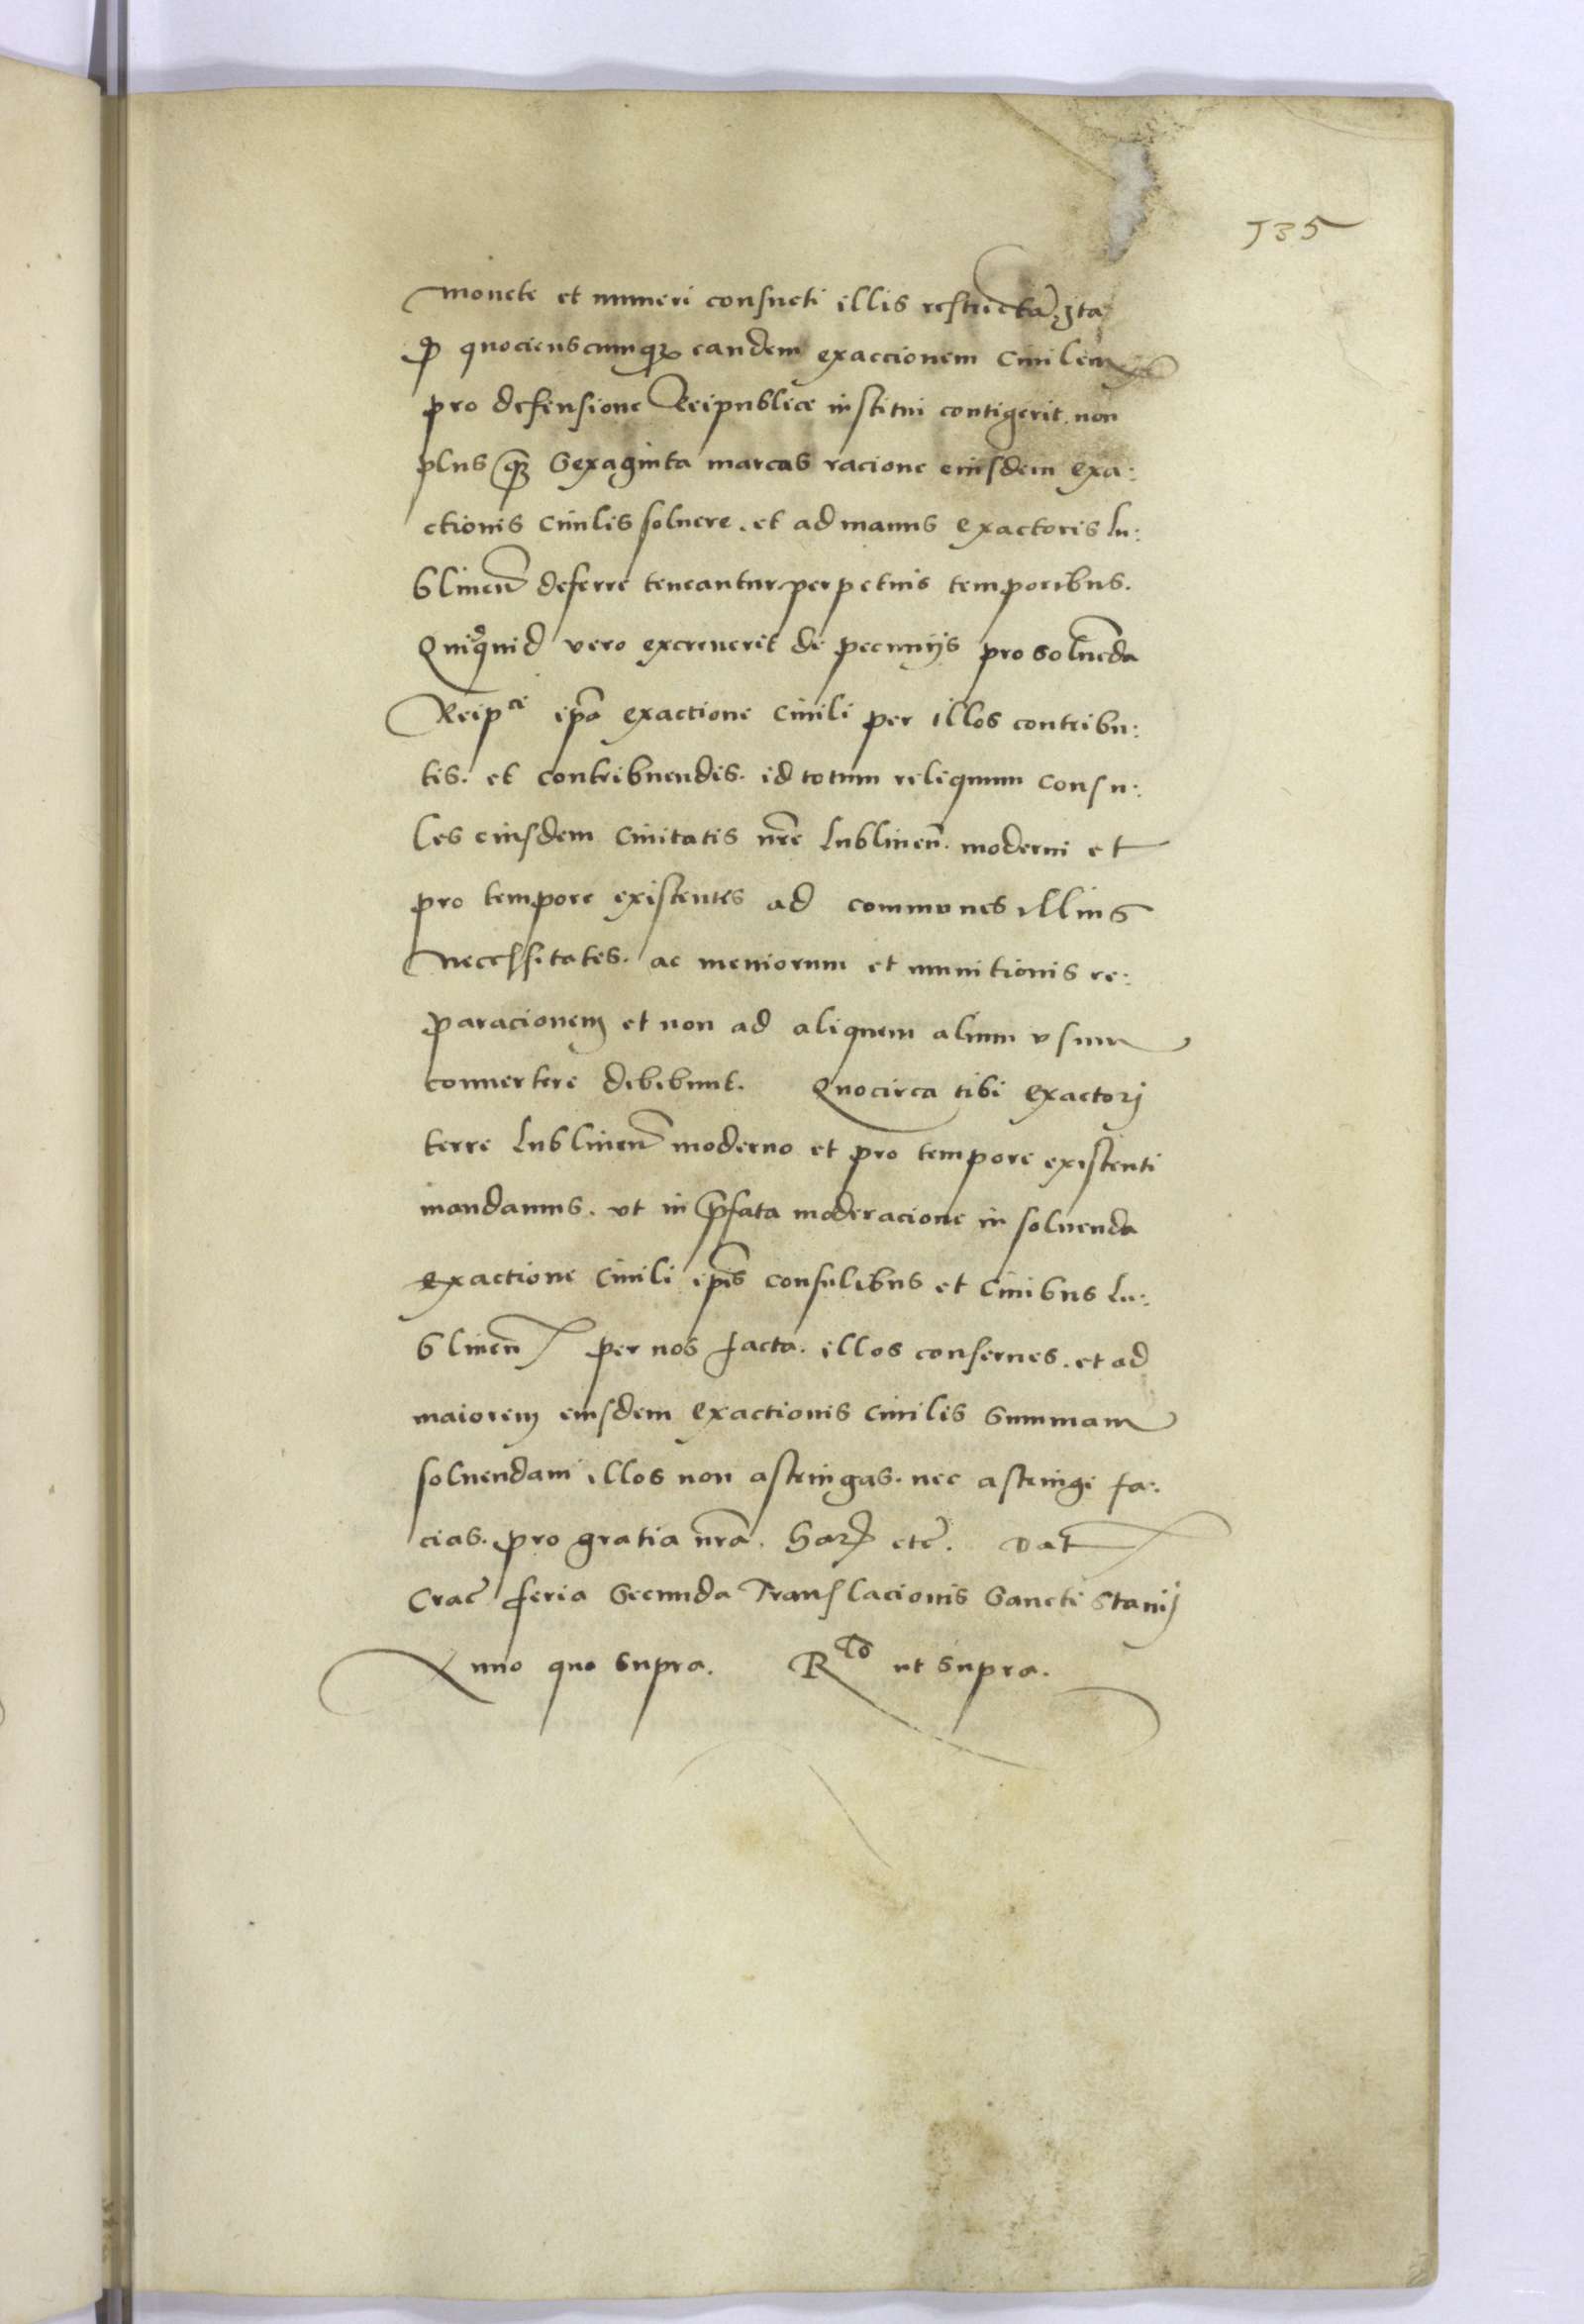 135
monete et numeri consueti illis restrictã, Ita
ꝙ quocienscumqꝫ eandem exaccionem ciuilem
pro defensione Reipublice institui contigerit. non
plus ꝙꝫ sexaginta marcas racione eiusdem exa:
ctionis ciuilis soluere. et ad manus exactoris lu:
blineñ deferre teneantur perpetuis temporibus.
Quicquid vero excreuerit de pecunijs pro soluẽda
Reipce ip̃a exactione ciuili per illos contribu:
tis. et contribuendis. id totum reliquum consu:
les eiusdem ciuitatis nr̃e lublineñ. moderni et
pro tempore existentes ad communes illius
necessitates. ac meniorum et munitionis re:
paracionem et non ad aliquem alium vsum
conuertere debebunt. Quocirca tibi exactorj
terre lublineñ moderno et pro tempore existenti
mandamus. vt in p̃fata moderacione in soluenda
exactione ciuili ip̃is consulibus et ciuibus lu:
blineñ per nos facta. illos conserues. et ad
maiorem eiusdem exactionis ciuilis summam
soluendam illos non astringas. nec astringi fa:
cias. pro gratia nr̃a. harꝫ etc̃. Dat
Crac̃ feria secunda Translacionis sancti Stanij
Anno quo supra. Rto ut supra.